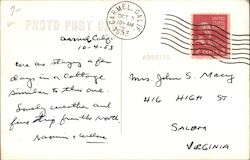 PHOTO POST CARD
Carmel, Calif.
10-4-53
CARMEL, CALIF.
OCT 5
10 AM
1953
ADDRESS
We are staying a few
days in a Cottage
similar to this one.
Lovely weather and
fine trip from the north
Mrs. John S. Macy
416 HIGH ST.
SALEM
VIRGINIA